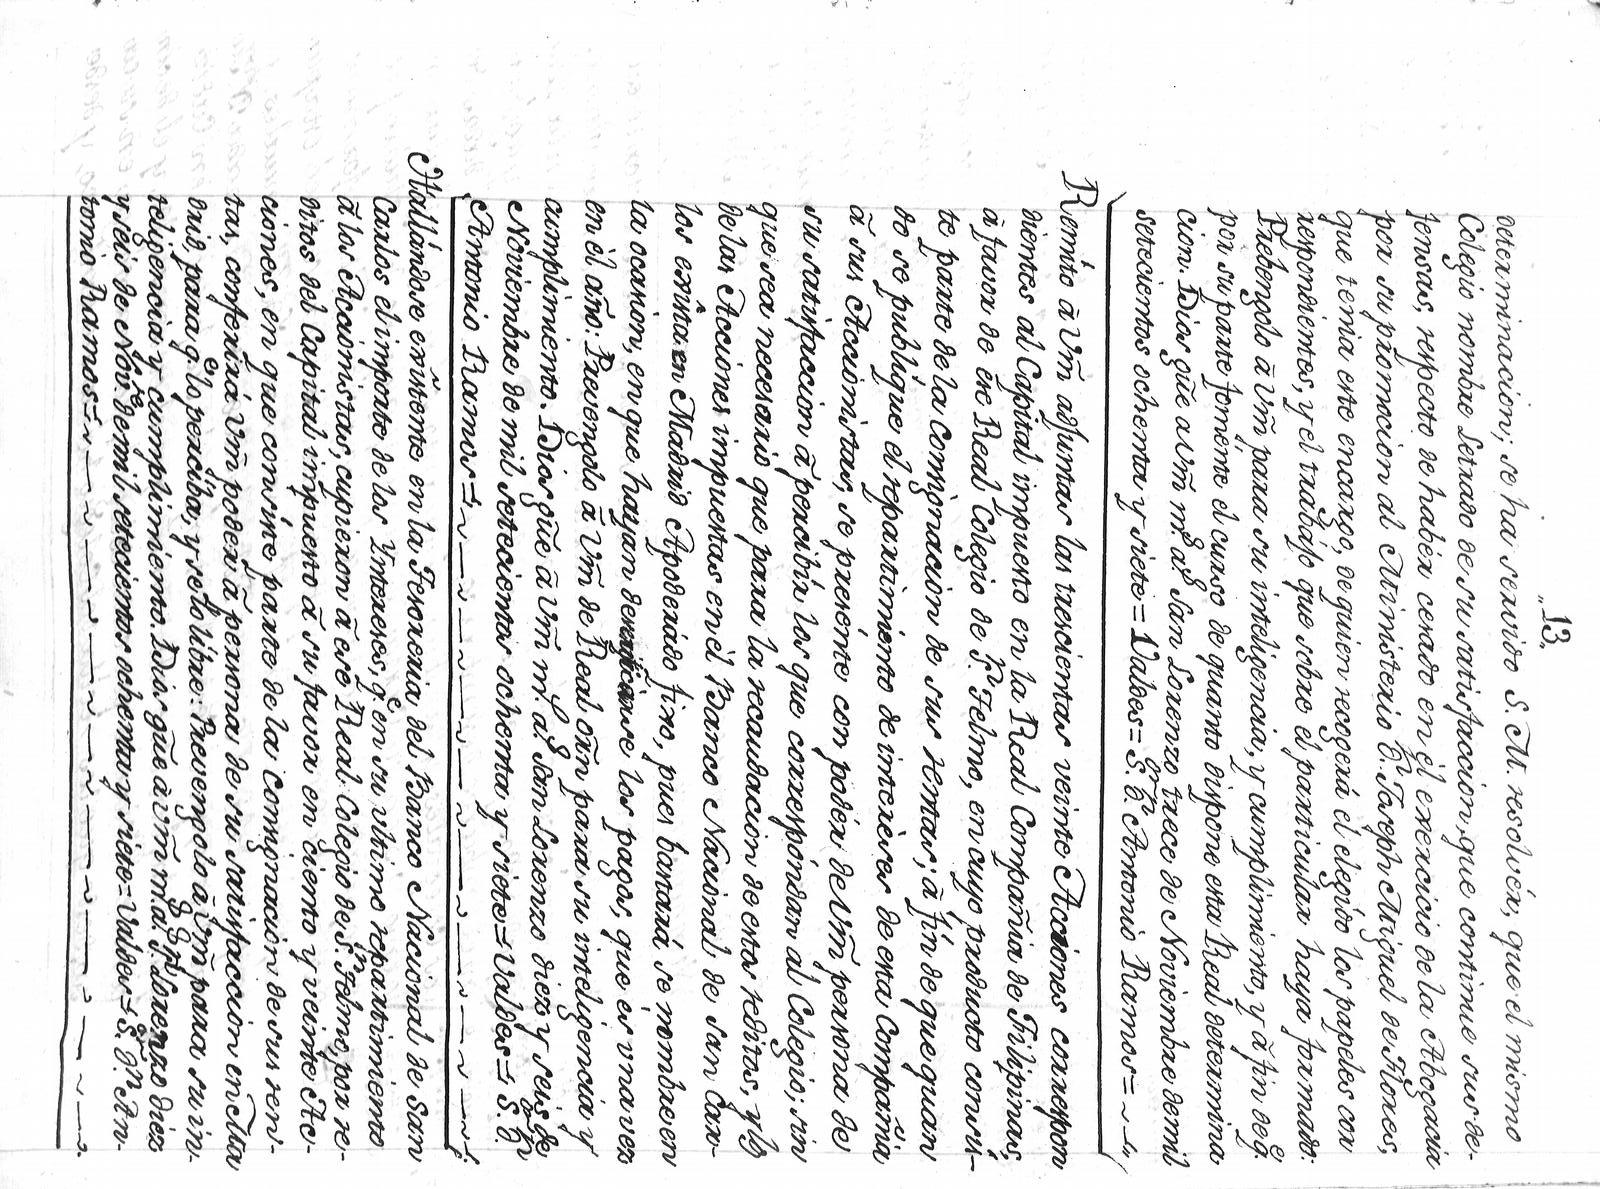 „13.
determinacion; se ha servido S. M. resolvér, que el mismo
Colegio nombre Letrado de su satisfaccion, que continue sus de-
fensas, respecto de habér cesado en él exercicio de la Abogacía
por su promocion al Ministerio Dn. Joseph Miguel de Flores,
que tenia este encargo, de quien recogerá el elegido los papeles cor
respondientes, y el trabajo que sobre el particular haya formado.
Prebengolo à Vm̃ para su inteligencia, y cumplimiento, y à fin de qe.
por su parte foménte el curso de quanto dispone esta Real determina
cion. Dios gũe a Vm̃ ms. as. San Lorenzo trece de Noviembre de mil
setecientos ochenta y siete = Valdes = S.or D.n Antonio Ramos =
Remíto à Vm̃ adjuntas las trescientas veinte Acciones correspon
dientes al Capital impuesto en la Real Compañia de Filipinas,
à favor de ese Real Colegio de S.n Telmo, en cuyo producto consis-
te parte de la Consignacion de sus rentas; à fin de que quan
do se publíque el repartimiento de interéses de esta Compañia
à sus Accionistas, se presénte con podér de Vm̃ persona de
su satisfaccion à percibír los que correspóndan al Colegio; sin
que sea necesario que para la recaudacion de estos reditos, y lo
de las Acciones impuestas en él Banco Nacional de San Car-
los exísta en Madrid Apoderádo fixo, pues bastará se nombre en
la ocasion, en que hayan de verificarse los pagos, que es una vez
en él año: Prevengolo à Vm̃ de Real orñ para su inteligencia y
cumplimiento. Dios gũe à Vm̃ ms. as. San Lorenzo diez y seis de
Noviembre de mil setecientos ochenta y siete = Valdes = S.or D.n
Antonio Ramos =
Hallándose exîstente en la Tesoreria del Banco Nacional de San
Carlos el importe de los Yntereses, qe. en su ultimo repartimiento
à los Accionistas, cupieron à ese Real Colegio de S.n Telmo, por re-
ditos del Capital impuesto à su favor en ciento y veinte Ac-
ciones, en que consíste parte de la Consignacion de sus ren-
tas, conferirá Vm̃ poder à persona de su satisfacción en Ma
drid, para qe. lo perciba, y se lo libre: Prevengolo à Vm̃ para su in-
teligencia y cumplimiento. Dios gũe à Vm̃ m.s a.s S.n Lorenzo diez
y séis de Nov.e de mil setecientos ochenta y siete = Valdes = S.or D.n An-
tonio Ramos =